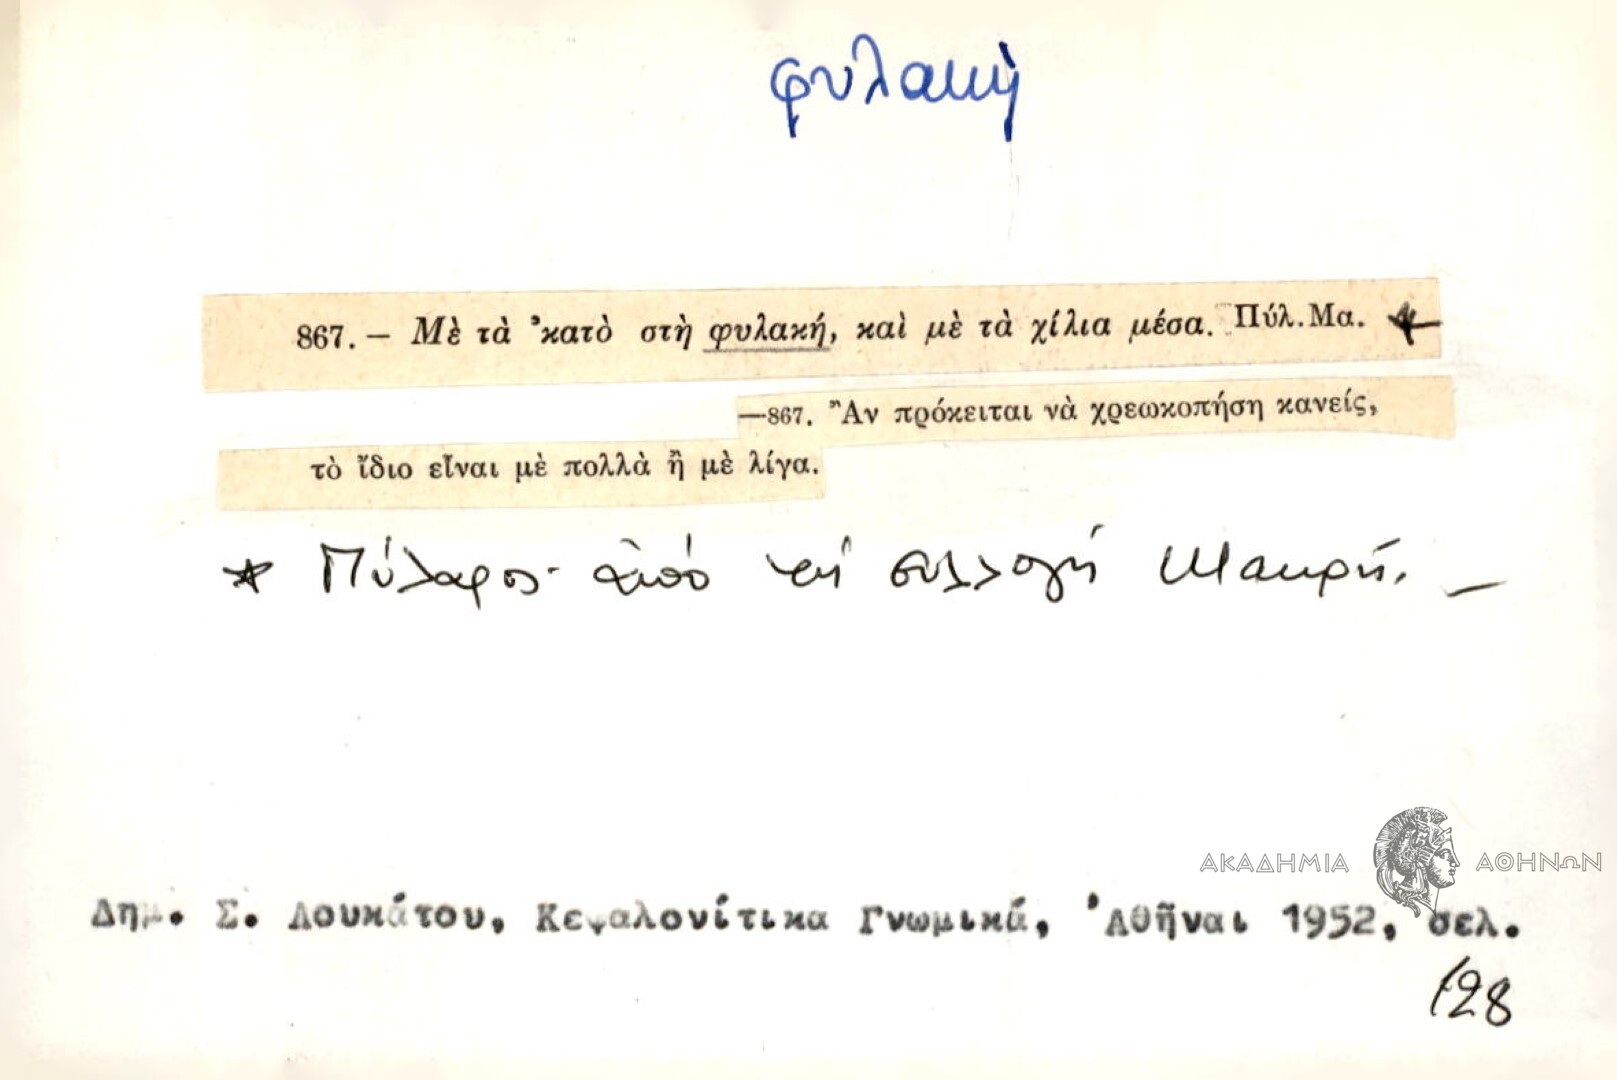 φυλακή
867. — Μὲ τὰ ᾿κατὸ στὴ φυλακή, καὶ μὲ τὰ χίλια μέσα. Πύλ. Μα. *
—867. Ἂν πρόκειται νὰ χρεωκοπήσῃ κανείς,
τὸ ἴδιο εἶναι μὲ πολλὰ ἢ μὲ λίγα.
* Πύλαρος· ἀπὸ τὴ συλλογή Μακρή. —
ΑΚΑΔΗΜΙΑ ΑΘΗΝΩΝ
Δημ. Σ. Λουκάτου, Κεφαλονίτικα Γνωμικά, ᾿Αθῆναι 1952, σελ.
128